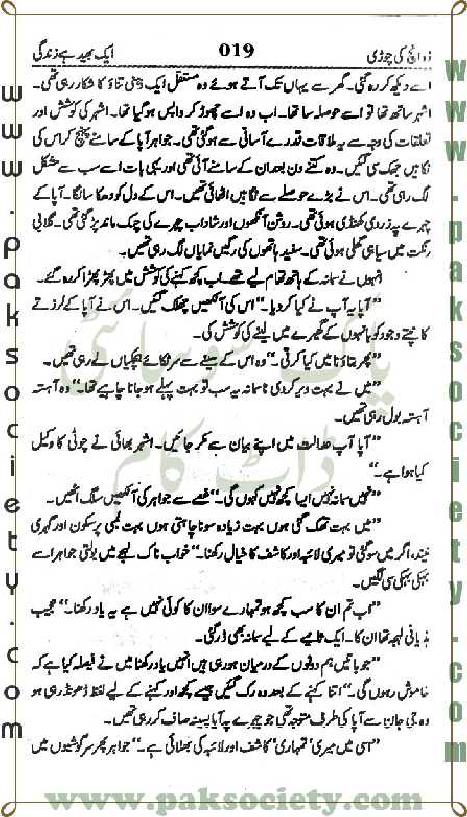 ذوالنج کی جوڑی 019 ایک بھید ہے زندگی
اسے دیکھ کر رہ گئی۔ گھر سے یہاں تک آتے ہوئے وہ مستقل ایک ذہنی تناؤ کا شکار رہی تھی۔
اشہر ساتھ تھا تو اسے حوصلہ سا تھا۔ اب وہ اسے چھوڑ کر واپس ہو گیا تھا۔ اشہر کی کوشش اور
تعلقات کی وجہ سے یہ ملاقات قدرے آسانی سے ہو گئی تھی۔ جواہر آپا کے سامنے پہنچ کر اس کی
نگاہیں جھک سی گئیں۔ وہ کتنے دن بعد ان کے سامنے آئی تھی اور یہی بات اسے سب سے مشکل
لگ رہی تھی۔ اس نے بڑے حوصلے سے نگاہیں اٹھائی تھیں۔ اس کے دل کو دھکا سا لگا۔ آپا کے
چہرے پہ زردی کھنڈی ہوئی تھی۔ روشن آنکھوں اور شاداب چہرے کی چمک ماند پڑ گئی تھی۔ گلابی
رنگت میں سیاہی گھلی ہوئی تھی۔ سفید ہاتھوں کی رگیں نمایاں لگ رہی تھیں۔
انہوں نے سمانہ کے ہاتھ تھام لیے تھے۔ لب کچھ کہنے کی کوشش میں پھڑ پھڑا کر رہ گئے۔
”آپا یہ آپ نے کیا کر دیا۔“ اس کی آنکھیں چھلک گئیں۔ اس نے آپا کے لرزتے
کانپتے وجود کو بانہوں کے گھیرے میں لینے کی کوشش کی۔
”پھر بتاؤ نا میں کیا کرتی۔“ وہ اس کے سینے سے سر ٹکائے ہچکیاں لے رہی تھیں۔
”میں نے بہت دیر کر دی نا سمانہ یہ سب تو بہت پہلے ہو جانا چاہیے تھا۔“ وہ آہستہ
آہستہ بول رہی تھیں۔
”آپا آپ عدالت میں اپنے بیان سے مکر جائیں۔ اشہر بھائی نے چوٹی کا وکیل
کیا ہوا ہے۔“
”نہیں سمانہ نہیں ایسا کچھ نہیں کہوں گی۔“ غصے سے جواہر کی آنکھیں سلگ اٹھیں۔
”میں بہت تھک گئی ہوں بہت زیادہ سونا چاہتی ہوں بہت لمبی پرسکون اور گہری
نیند، اگر میں سو گئی تو میری لائبہ اور کاشف کا خیال رکھنا۔“ خواب ناک لہجے میں بولتی جواہر اسے
بہکی بہکی سی لگیں۔
”اب تم ان کا سب کچھ ہو تمہارے سوا ان کا کوئی نہیں ہے یہ یاد رکھنا۔“ عجیب
ہذیانی لہجہ تھا ان کا۔ ایک ثانیے کے لیے سمانہ بھی ڈر گئی۔
”جو باتیں ہم دونوں کے درمیان ہو رہی ہیں انہیں یاد رکھنا میں نے فیصلہ کیا ہے کہ
خاموش رہوں گی۔“ اتنا کہنے کے بعد وہ رک گئیں جیسے کچھ اور کہنے کے لیے لفظ ڈھونڈ رہی ہو
وہ جی جان سے آپا کی طرف متوجہ تھی جو چہرے پہ آیا پسینہ صاف کر رہی تھیں۔
”اسی میں میری، تمہاری، کاشف اور لائبہ کی بھلائی ہے۔“ جواہر پھر سرگوشیوں میں
www.paksociety.com
www.paksociety.com
www.paksociety.com
پاک سوسائٹی
ڈاٹ کام